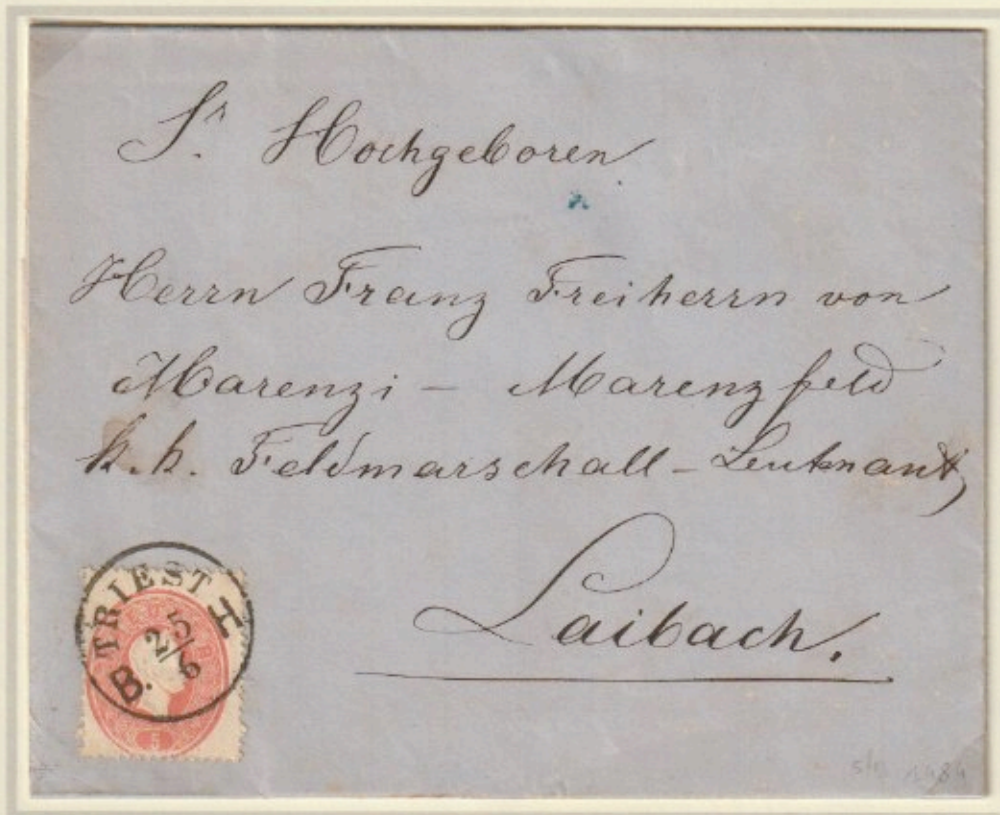 Sr. Hochgeboren
Herrn Franz Freiherrn von
Marenzi - Marenzfeld
k. k. Feldmarschall - Leutnant,
Laibach.
TRIEST
25/6
B. H
5